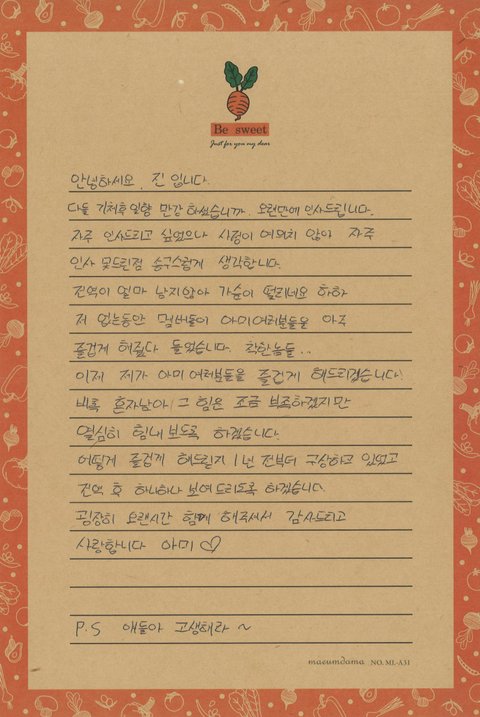 Be sweet
Just for you my dear
안녕하세요, 진 입니다.
다들 기체후일향 만강 하셨습니까. 오랜만에 인사드립니다.
자주 인사드리고 싶었으나 사정이 여의치 않아 자주
인사 못드린점 송구스럽게 생각합니다.
전역이 얼마 남지않아 가슴이 떨리네요 하하
저 없는동안 멤버들이 아미여러분들을 아주
즐겁게 해줬다 들었습니다. 착한놈들..
이제 제가 아미 여러분들을 즐겁게 해드리겠습니다!
비록 혼자남아 그 힘은 조금 부족하겠지만
열심히 힘내 보도록 하겠습니다.
어떻게 즐겁게 해드릴지 1년 전부터 구상하고 있었고
전역 후 하나하나 보여 드리도록 하겠습니다.
굉장히 오랜시간 함께 해주셔서 감사드리고
사랑합니다 아미 ♡
P.S 얘들아 고생해라 ~
maeumdama NO. ML-A31